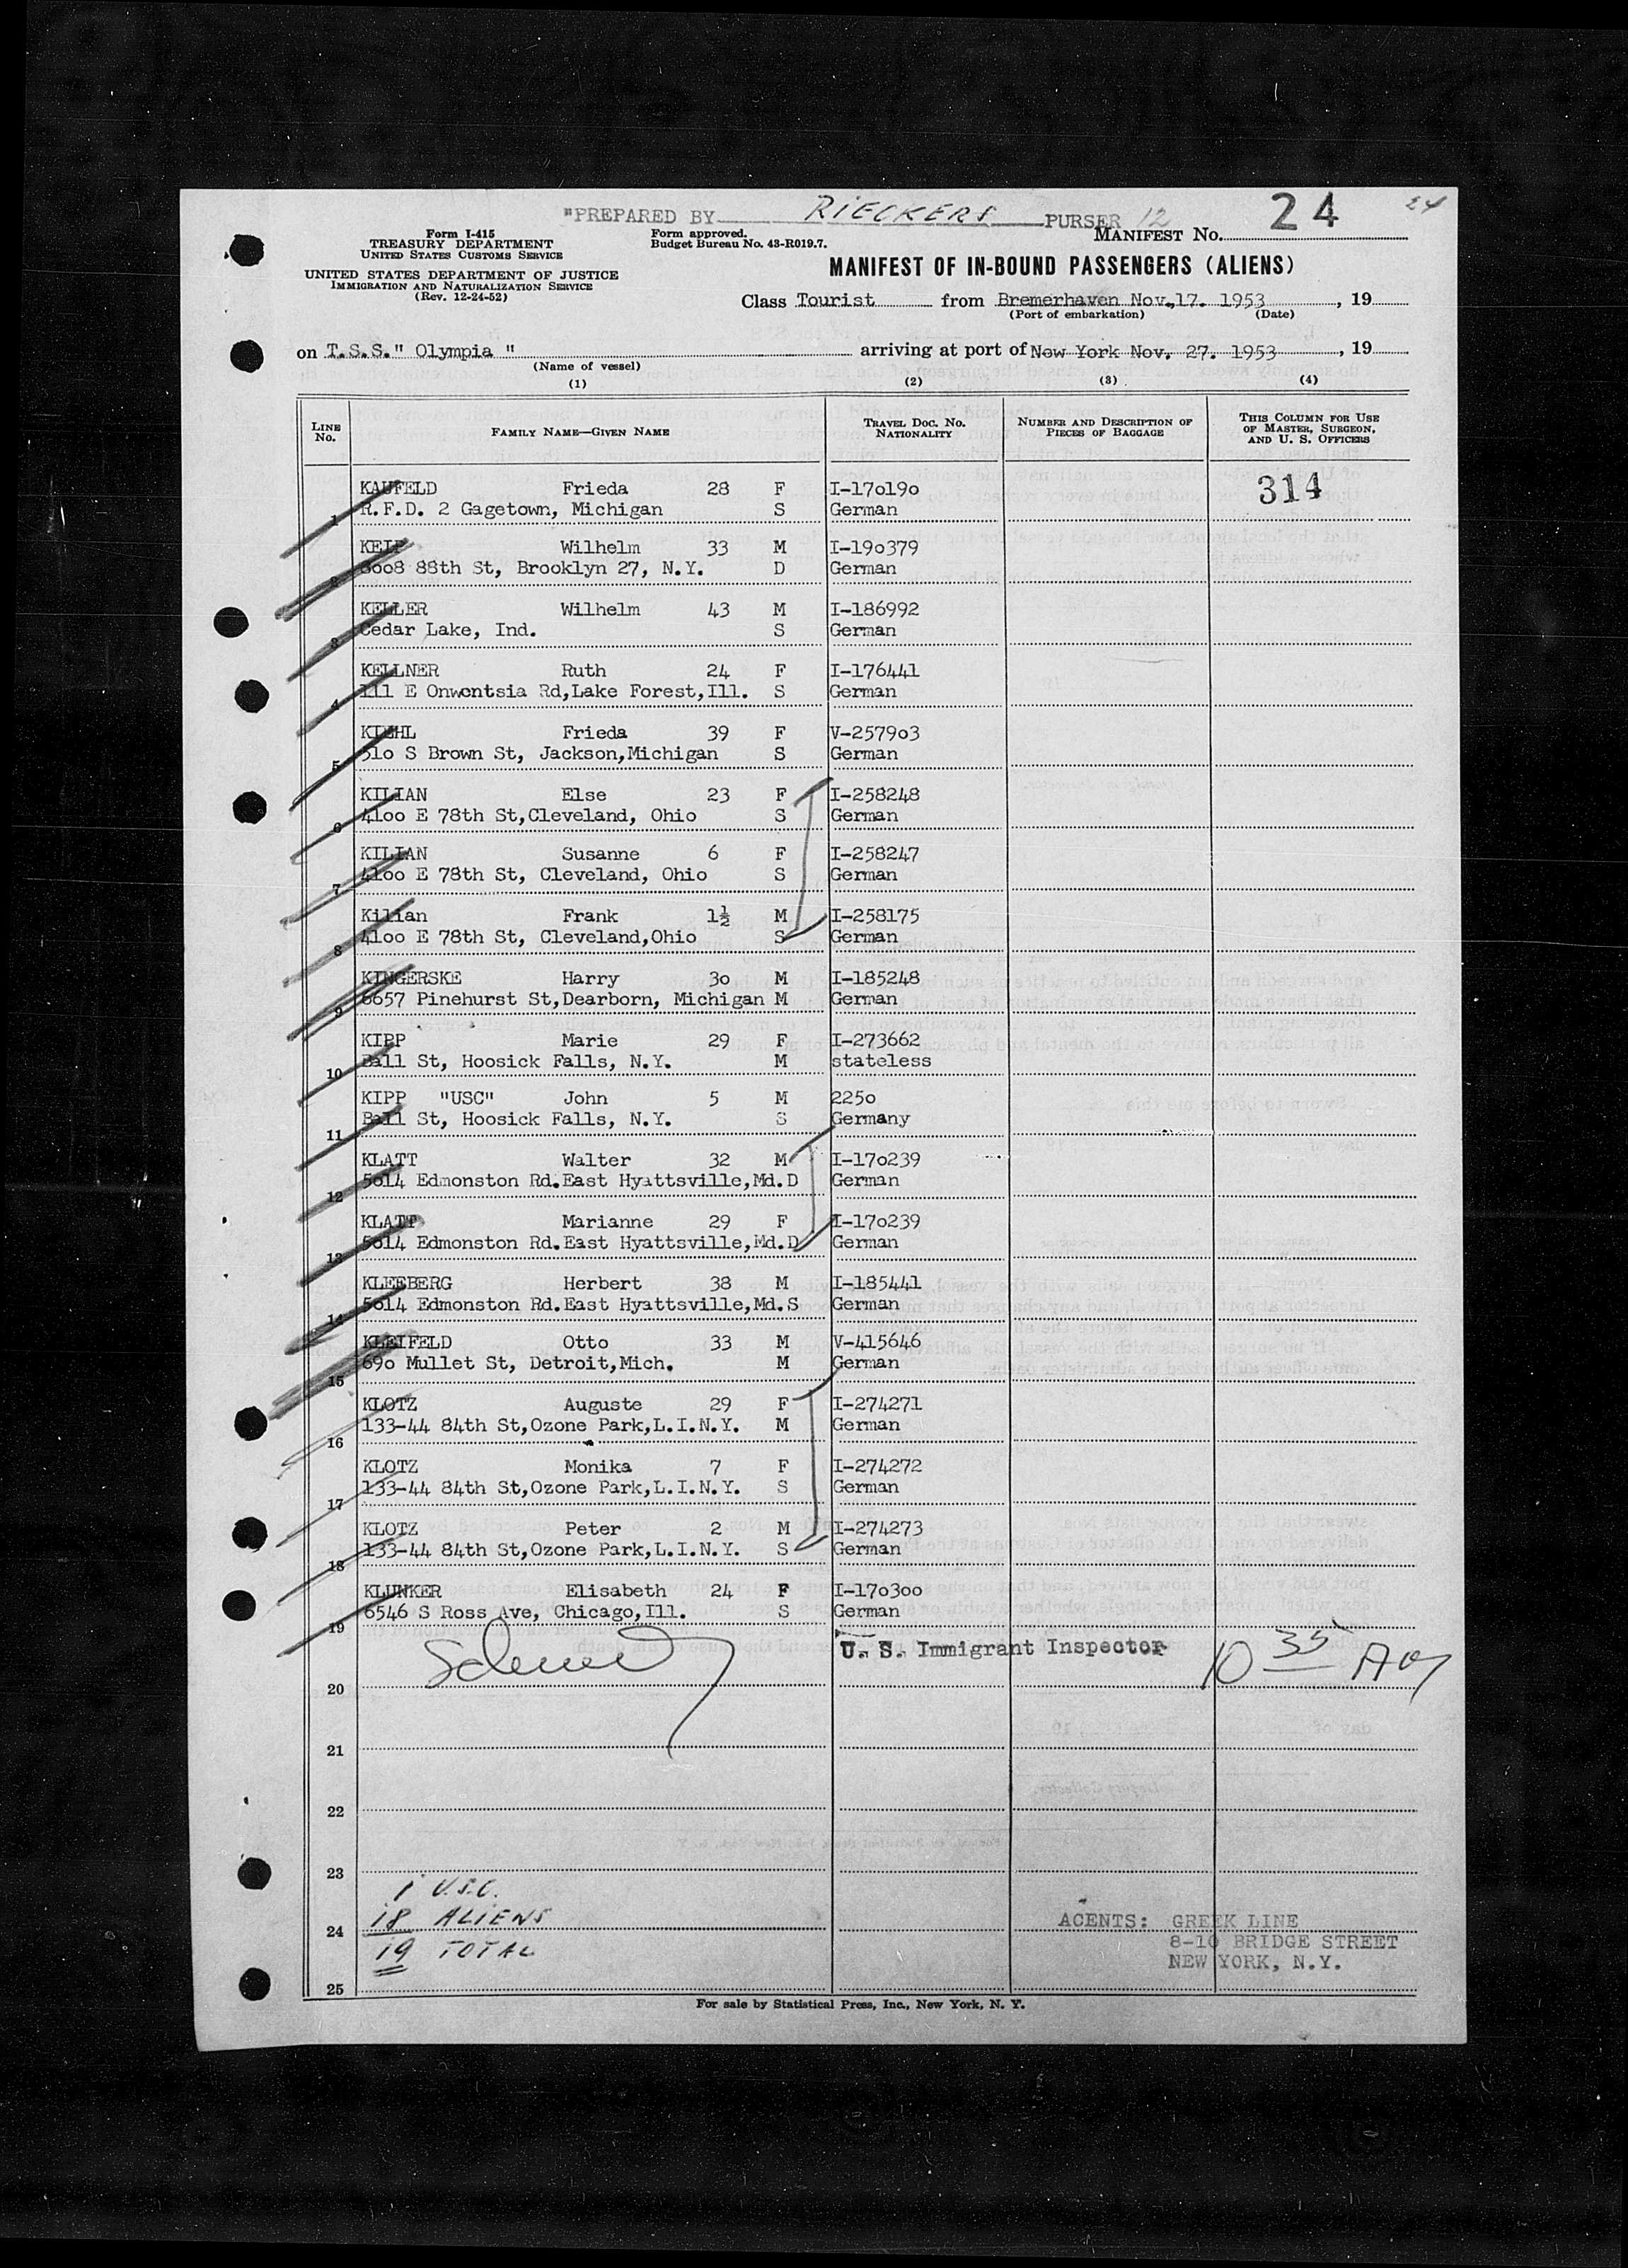 "PREPARED BY RIECKERS PURSER 12 24 24
Form I-415
TREASURY DEPARTMENT
UNITED STATES CUSTOMS SERVICE
UNITED STATES DEPARTMENT OF JUSTICE
IMMIGRATION AND NATURALIZATION SERVICE
(Rev. 12-24-52)
Form approved.
Budget Bureau No. 43-R019.7.
MANIFEST No.
MANIFEST OF IN-BOUND PASSENGERS (ALIENS)
Class Tourist from Bremerhaven Nov.,17. 1953, 19
(Port of embarkation) (Date)
on T.S.S." Olympia " arriving at port of New York Nov. 27. 1953, 19
(Name of vessel)
(1) (2) (3) (4)
LINE No. FAMILY NAME—GIVEN NAME TRAVEL DOC. NO. NATIONALITY NUMBER AND DESCRIPTION OF PIECES OF BAGGAGE THIS COLUMN FOR USE OF MASTER, SURGEON, AND U. S. OFFICERS
KAUFELD Frieda 28 F I-17o19o 314
1 R.F.D. 2 Gagetown, Michigan S German
KEIP Wilhelm 33 M I-19o379
2 8oo8 88th St, Brooklyn 27, N.Y. D German
KELLER Wilhelm 43 M I-186992
3 Cedar Lake, Ind. S German
KELLNER Ruth 24 F I-176441
4 111 E Onwentsia Rd,Lake Forest,Ill. S German
KIEHL Frieda 39 F V-2579o3
5 51o S Brown St, Jackson,Michigan S German
KILIAN Else 23 F I-258248
6 41oo E 78th St,Cleveland, Ohio S German
KILIAN Susanne 6 F I-258247
7 41oo E 78th St, Cleveland, Ohio S German
Kilian Frank 1½ M I-258175
8 41oo E 78th St, Cleveland,Ohio S German
KINGERSKE Harry 3o M I-185248
9 6657 Pinehurst St,Dearborn, Michigan M German
KIPP Marie 29 F I-273662
10 Ball St, Hoosick Falls, N.Y. M stateless
KIPP "USC" John 5 M 225o
11 Ball St, Hoosick Falls, N.Y. S Germany
KLATT Walter 32 M I-17o239
12 5614 Edmonston Rd.East Hyattsville,Md. D German
KLATT Marianne 29 F I-17o239
13 5614 Edmonston Rd.East Hyattsville,Md. D German
KLEEBERG Herbert 38 M I-185441
14 5614 Edmonston Rd.East Hyattsville,Md. S German
KLEIFELD Otto 33 M V-415646
15 69o Mullet St, Detroit,Mich. M German
KLOTZ Auguste 29 F I-274271
16 133-44 84th St,Ozone Park,L.I.N.Y. M German
KLOTZ Monika 7 F I-274272
17 133-44 84th St,Ozone Park,L.I.N.Y. S German
KLOTZ Peter 2 M I-274273
18 133-44 84th St,Ozone Park,L.I.N.Y. S German
KLUNKER Elisabeth 24 F I-17o3oo
19 6546 S Ross Ave, Chicago,Ill. S German
U. S. Immigrant Inspector 10 35 AM
20
21
22
23
1 U.S.C.
24 18 ALIENS AGENTS: GREEK LINE
19 TOTAL 8-10 BRIDGE STREET
NEW YORK, N.Y.
25
For sale by Statistical Press, Inc., New York, N. Y.